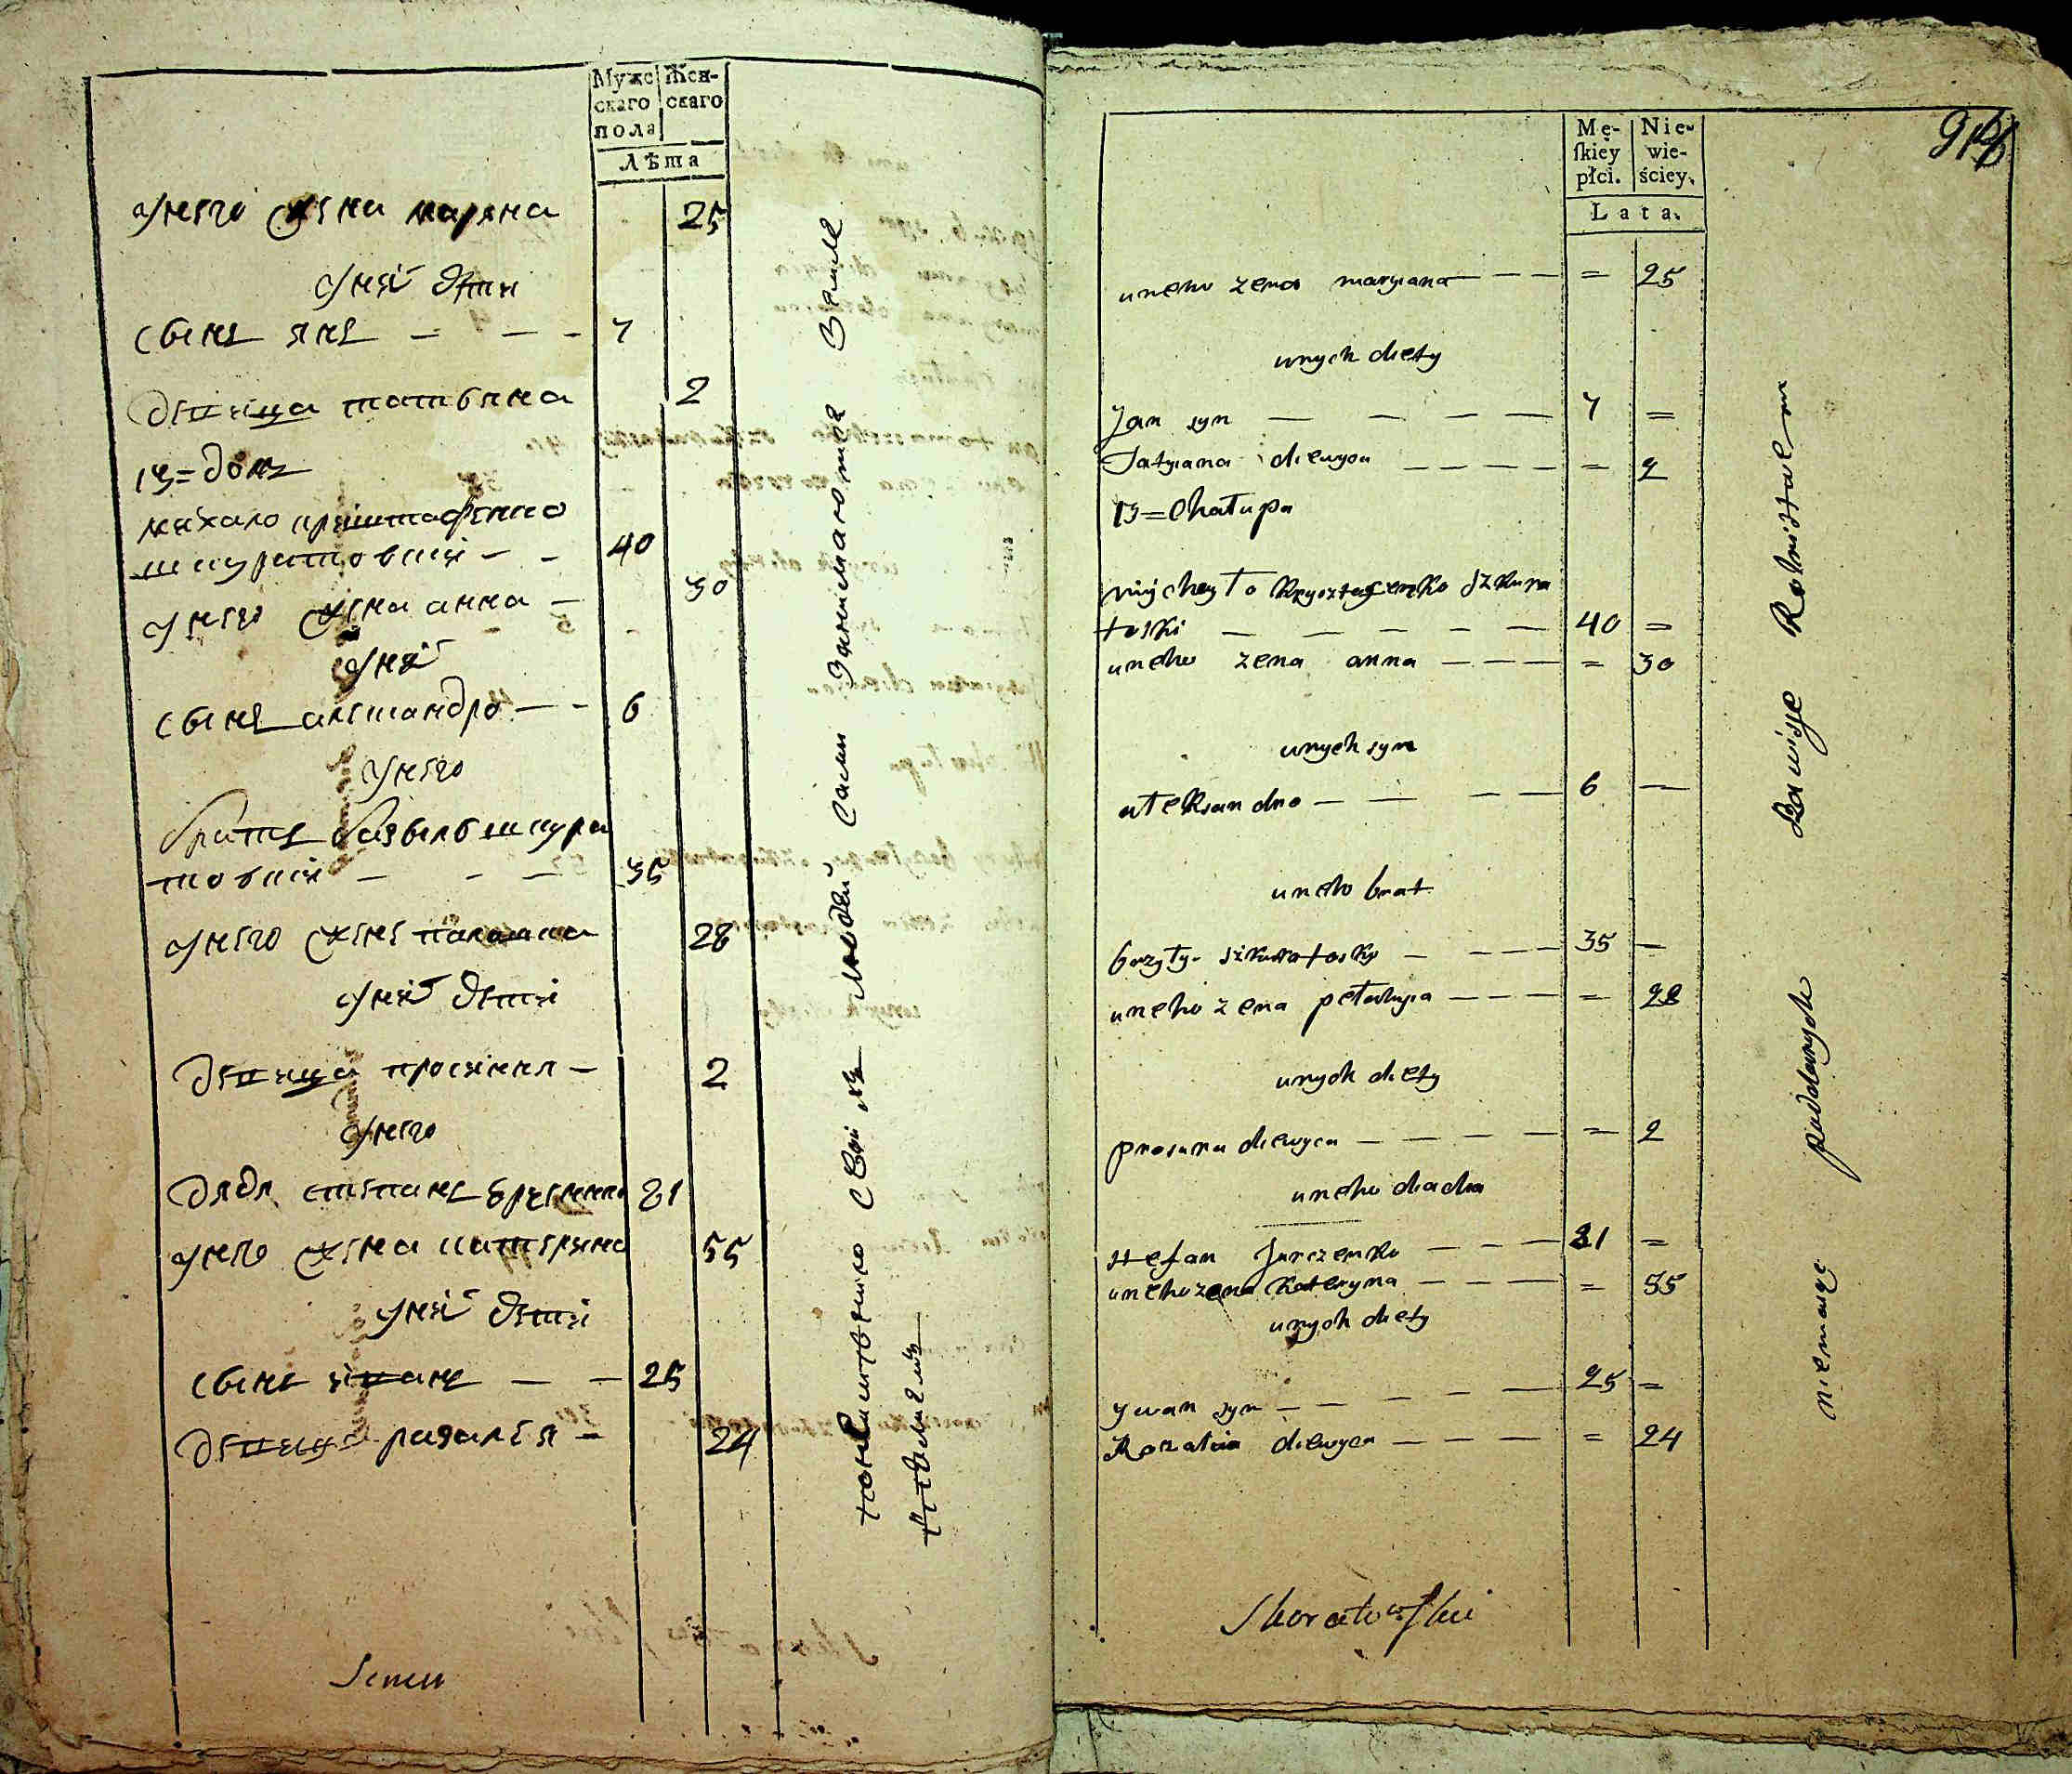 Муже
скаго
пола
Жен-
скаго
Лѣта
унего жена маряна 25
уних дѣти
сынъ янъ — — - 7
девица татьяна 2
13=домъ
михало криштафенко
шкуратовски - - 40
унего жена анна — 30
уних
сынъ александро — - 6
унего
братъ базыль шкура
товски — - — 35
унего жена палашка 28
уних дети
девица просимня — 2
унего
дядя степанъ юрченко 81
унего жена катерина 55
уних дети
сынъ иванъ — — 25
девица разалея — 24
Семен
сами занимаются земле
людей
своимъ
Mę-
ſkiey
płci.
Nie-
wie-
ściey.
Lata.
uneho zena maryana — — — = 25
unych diety
Jan syn — — — — 7 =
Tatyiana diewyca — — — — = 2
13=Chałupa
michayło krysztafienko szkura
toski — — — — — 40 =
uneho zena anna — — — = 30
unych syn
ałeksandro — — — — 6 —
uneho brat
bazyły szkuratosky — — — 35 —
uneho zena pełahyia — — — = 28
unych diety
prosima diewyca — — — — = 2
uneho diadia
stefan Jurczenko — — — 81 =
uneho zena kateryna — — — = 55
unych diety
ywan syn — — — — — 25 =
Rozalia diewyca — — — — = 24
Skoratowſki
bawiące Rolnistwem
paddanych
niemaię